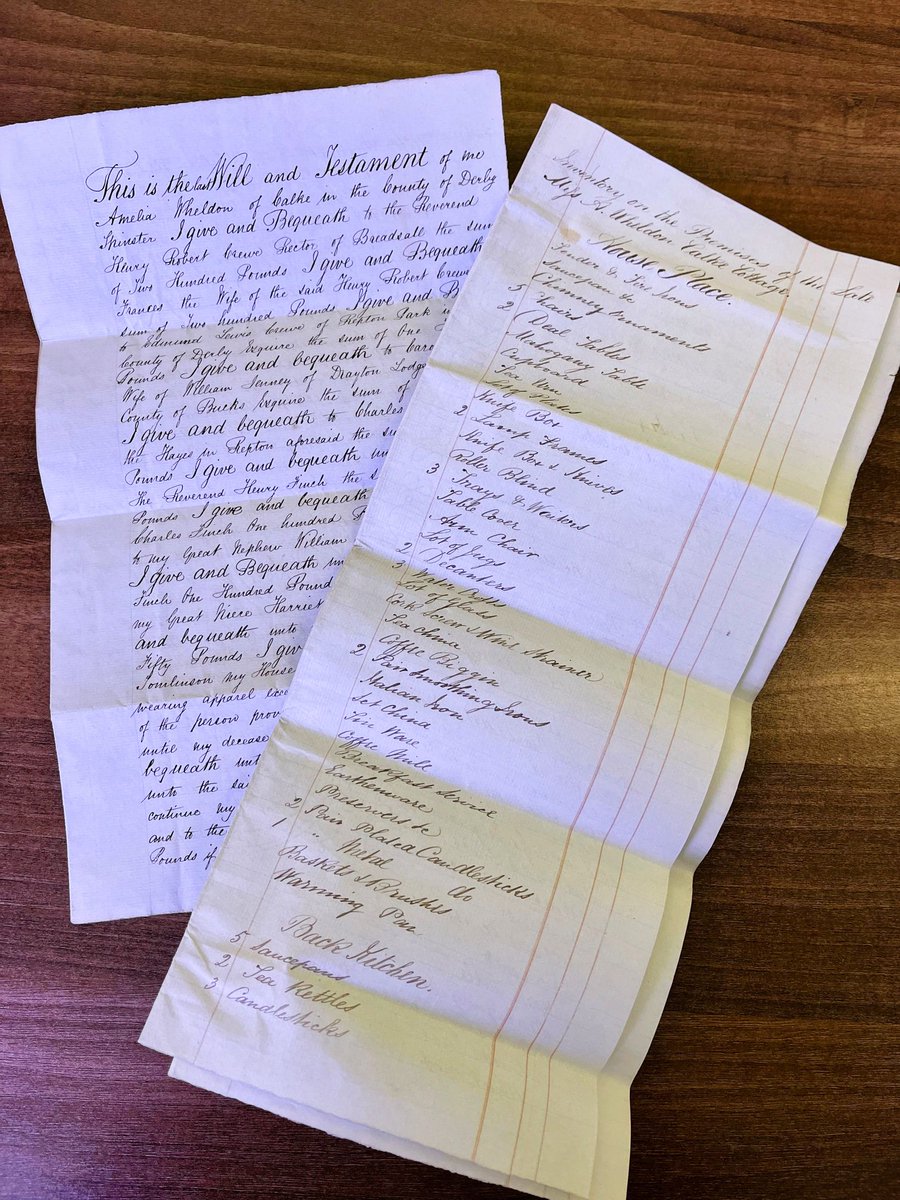 This is the last Will and Testament of me
Amelia Wheldon of Calke in the County of Derby
Spinster I give and Bequeath to the Reverend
Henry Robert Crewe Rector of Breadsall the sum
of Two Hundred Pounds I give and Bequeath
Frances the Wife of the said Henry Robert Crewe
sum of Two hundred Pounds I give and B
to Edmund Lewis Crewe of Repton Park in
County of Derby Esquire the sum of One
Pounds I give and bequeath to Caro
Wife of William Jenney of Drayton Lodge
County of Bucks Esquire the sum of
I give and bequeath to Charles
the Hayes in Repton aforesaid the su
Pounds I give and bequeath un
The Reverend Henry Finch the s
Pounds I give and bequeath
Charles Finch One hundred P
to my Great Nephew William
I give and Bequeath un
Finch One Hundred Pound
my Great Niece Harriet
and bequeath unto
Fifty Pounds I give
Tomlinson my House
wearing apparel
of the person prov
until my decease
bequeath unto
unto the sai
continue my
and to the
Pounds if
Inventory on the Premises of the Late
Miss A. Wheldon Calke Cottage.
House Place.
Fender & Fire Irons
Saucepan &c
Chimney Ornaments
5 Chairs
2 Deal Tables
Mahogany Table
Cupboard
Tin Ware
Knife Box
2 Lamp Frames
Knife Box & Knives
Roller Blind
3 Trays & Waiters
Table Cover
Arm Chair
Lot of Jugs
2 Decanters
3 Water
Lot of Glass
Cork Screw & Wine Strainer
Tea China
Coffee Biggin
2 Pair Smoothing Irons
Italian Iron
Set China
Tin Ware
Coffee Mill
Breakfast Service
Earthenware
Preserves &c
2 Pair Plated Candlesticks
1 " Metal do
Baskets & Brushes
Warming Pan
Back Kitchen.
5 Saucepans
2 Tea Kettles
3 Candlesticks